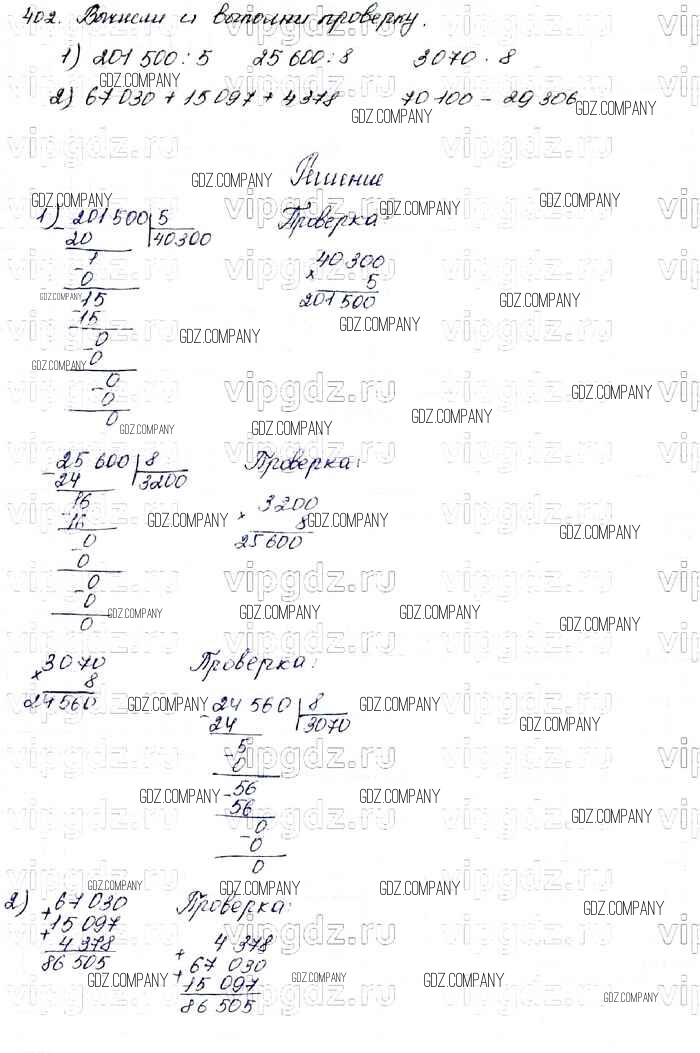 402. Вычисли и выполни проверку.
1) 201 500 : 5 25 600 : 8 3070 · 8
2) 67 030 + 15 097 + 4 378 70 100 - 29 306
Решение
1) 201 500 | 5 Проверка:
- 20 40300
1 40 300
- 0 × 5
15 201 500
- 15
0
- 0
0
- 0
0
25 600 | 8 Проверка:
- 24 3200
16 3200
- 16 × 8
0 25 600
- 0
0
- 0
0
3070 Проверка:
× 8
24 560
24 560 | 8
- 24 3070
5
- 0
56
- 56
0
- 0
0
2) 67 030 Проверка:
+ 15 097
+ 4 378
86 505
4 378
+ 67 030
+ 15 097
86 505
vipgdz.ru
GDZ.COMPANY